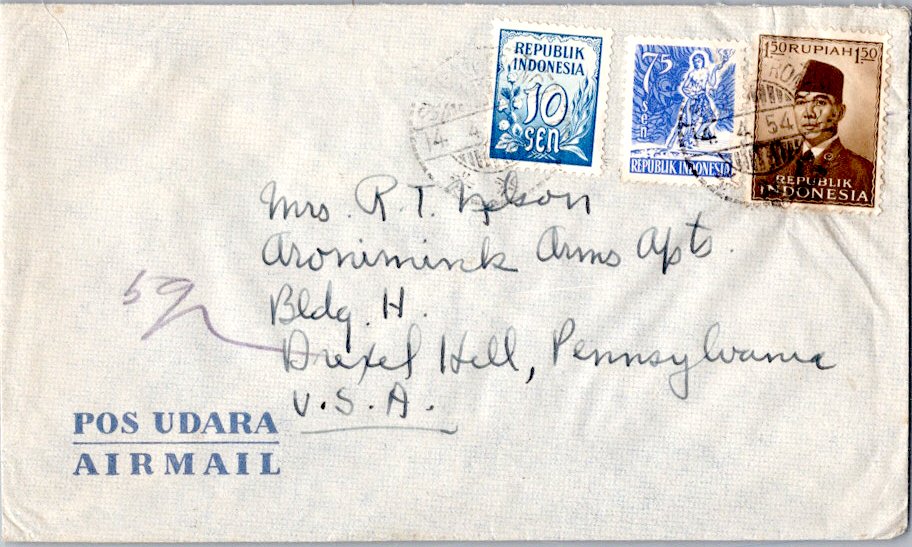 REPUBLIK
INDONESIA
10
SEN
75
sen
REPUBLIK INDONESIA
1.50 RUPIAH 1.50
REPUBLIK
INDONESIA
14 4
14 4 54
Mrs. R. T. Nelson
Aronimink Arms Apts.
Bldg. H.
Drexel Hill, Pennsylvania
U.S.A.
59
POS UDARA
AIRMAIL